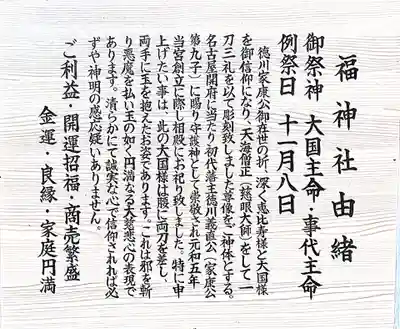 福神社由緒
御祭神　大国主命・事代主命
例祭日　十一月八日
徳川家康公御在世の折、深く恵比寿様と大国様
を御信仰になり、天海僧正（慈眼大師）をして一
刀三礼を以て彫刻致しました尊像をご神体とする。
名古屋開府に当たり初代藩主徳川義直公（家康公
第九子）に賜り守護神として崇敬され元和五年
当宮創立に際し相殿にお祀り致しました。特に申
上げたい事は、此の大国様は腰に両刀を差し、
両手に玉を抱えたお姿であります。これは邪を斬
り悪魔を払い玉の如く円満なる大慈悲心の表現で
あります。清らかにて誠実な心で信仰されれば必
ずや神明の感応疑いもありません。
ご利益・開運招福・商売繁盛
金運・良縁・家庭円満